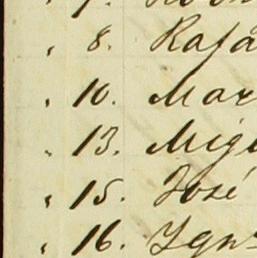 " 8. Rafa
" 10. Mar
" 13. Migu
" 15. José
" 16. Ign